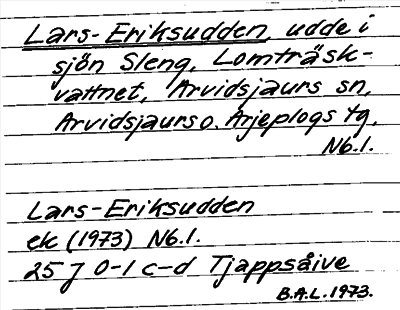 Lars-Eriksudden, udde i
sjön Sleng, Lomträsk-
vattnet, Arvidsjaurs sn,
Arvidsjaurs o. Arjeplogs tg,
Nb.l.
Lars-Eriksudden
ek (1973) Nb.l.
25 J 0-1 c-d Tjappsåive
B.A.L. 1973.